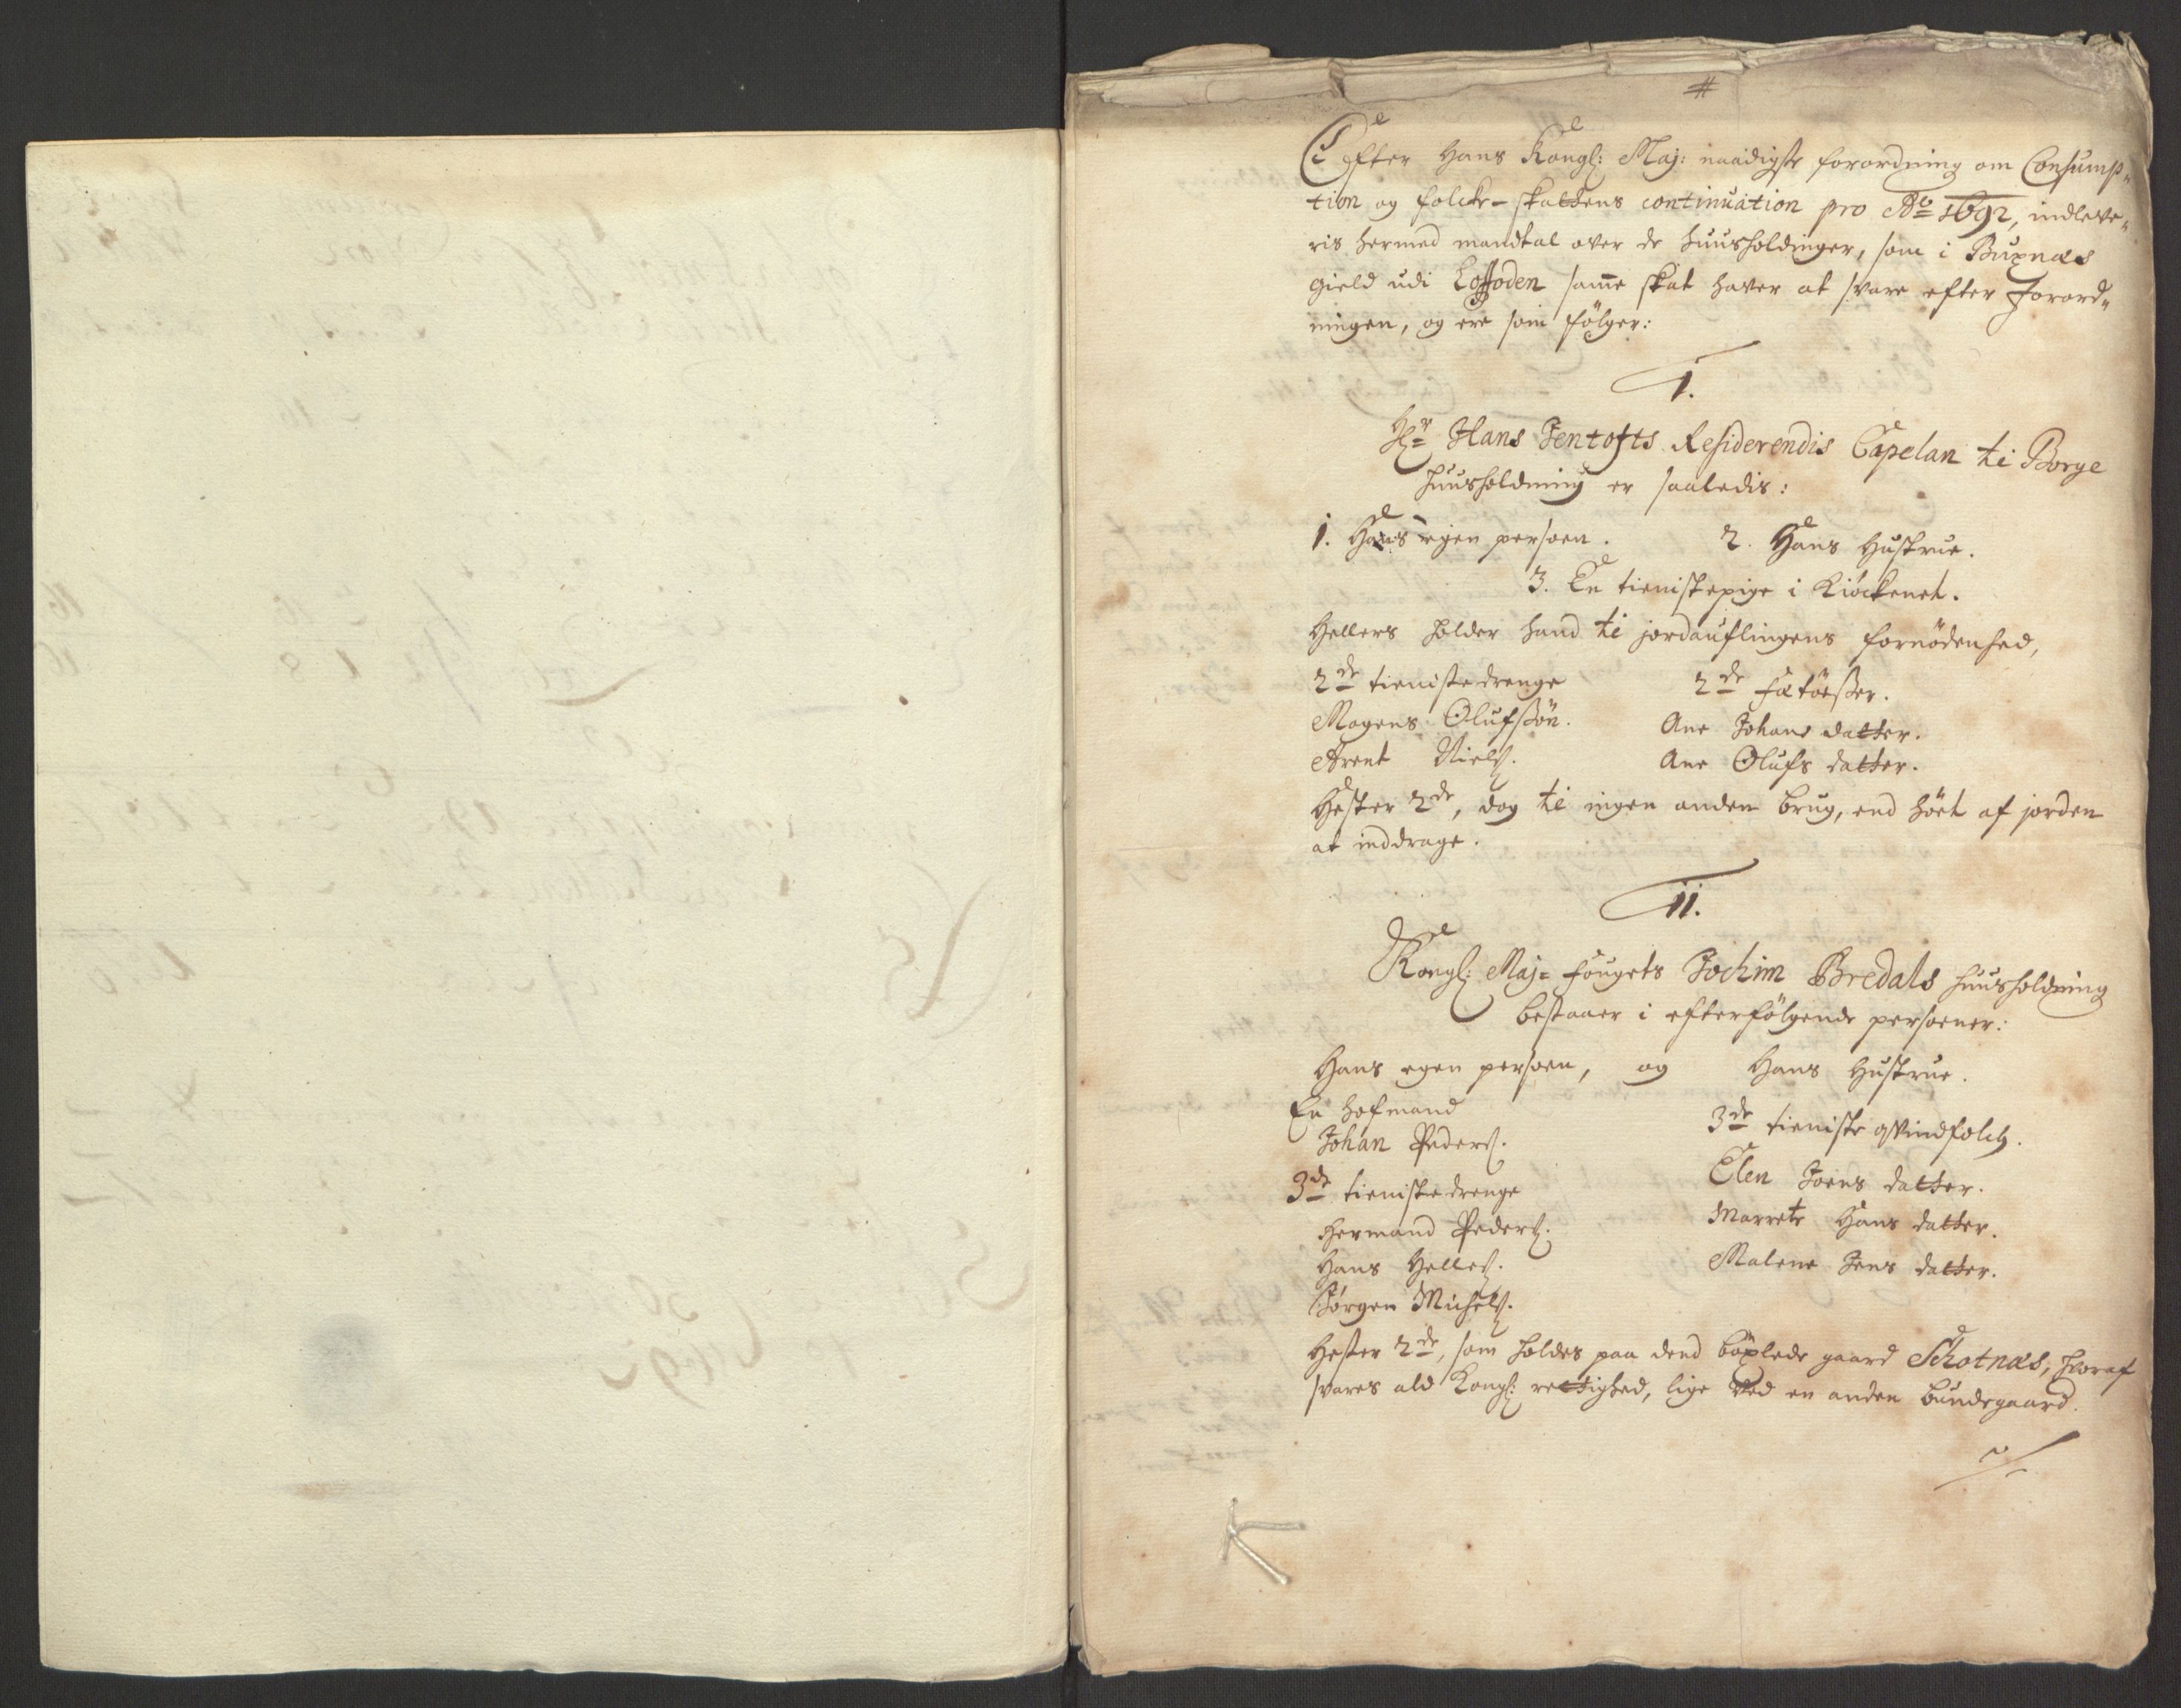 #
Efter Hans Kongl: Maj: naadigste forordning om Consump-
tion og folcke-skattens continuation pro Ao 1692, indleve-
ris hermed mandtal over de huusholdinger, som i Buxnæs
gield udi Loffoden samme skat haver at svare efter Forord-
ningen, og ere som fölger:
I.
Hr Hans Jentofts Residerendis Capelan til Borge
huusholdning er saaledis:
1. Hans egen persoen. 2. Hans Hustrue.
3. En tienistepige i Kiöckenet.
Hellers holder hand til jordauflingens fornödenhed,
2de tienistedrenge 2de fætöesser.
Mogens Olufssön. Ane Johans datter.
Arent Niels. Ane Olufs datter.
Hester 2de, dog til ingen anden brug, end höet af jorden
at inddrage.
II.
Kongl: Maj= fougets Jochim Bredals huusholdning
bestaaer i efterfölgende persoener:
Hans egen persoen, og Hans Hustrue.
En hofmand 3de tieniste qvindfolch.
Johan Peders. Elen Joens datter.
3de tienistedrenge Marrete Hans datter.
Hermand Peders. Malene Jens datter.
Hans Helles.
Jörgen Michels.
Hester 2de, som holdes paa dend böxlede gaard Schotnæs, hvoraf
svares ald Kongl: rettighed, lige ved en anden bundegaard.